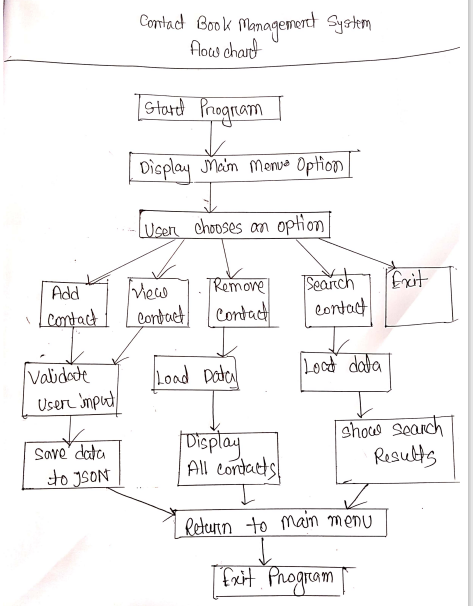 Contact Book Management System
Flow chart
Start Program
Display Main Menu Option
User chooses an option
Add
contact
View
contact
Remove
contact
Search
contact
Exit
Validate
User input
Load Data
Load data
Save data
to JSON
Display
All contacts
show search
Results
Return to main menu
Exit Program